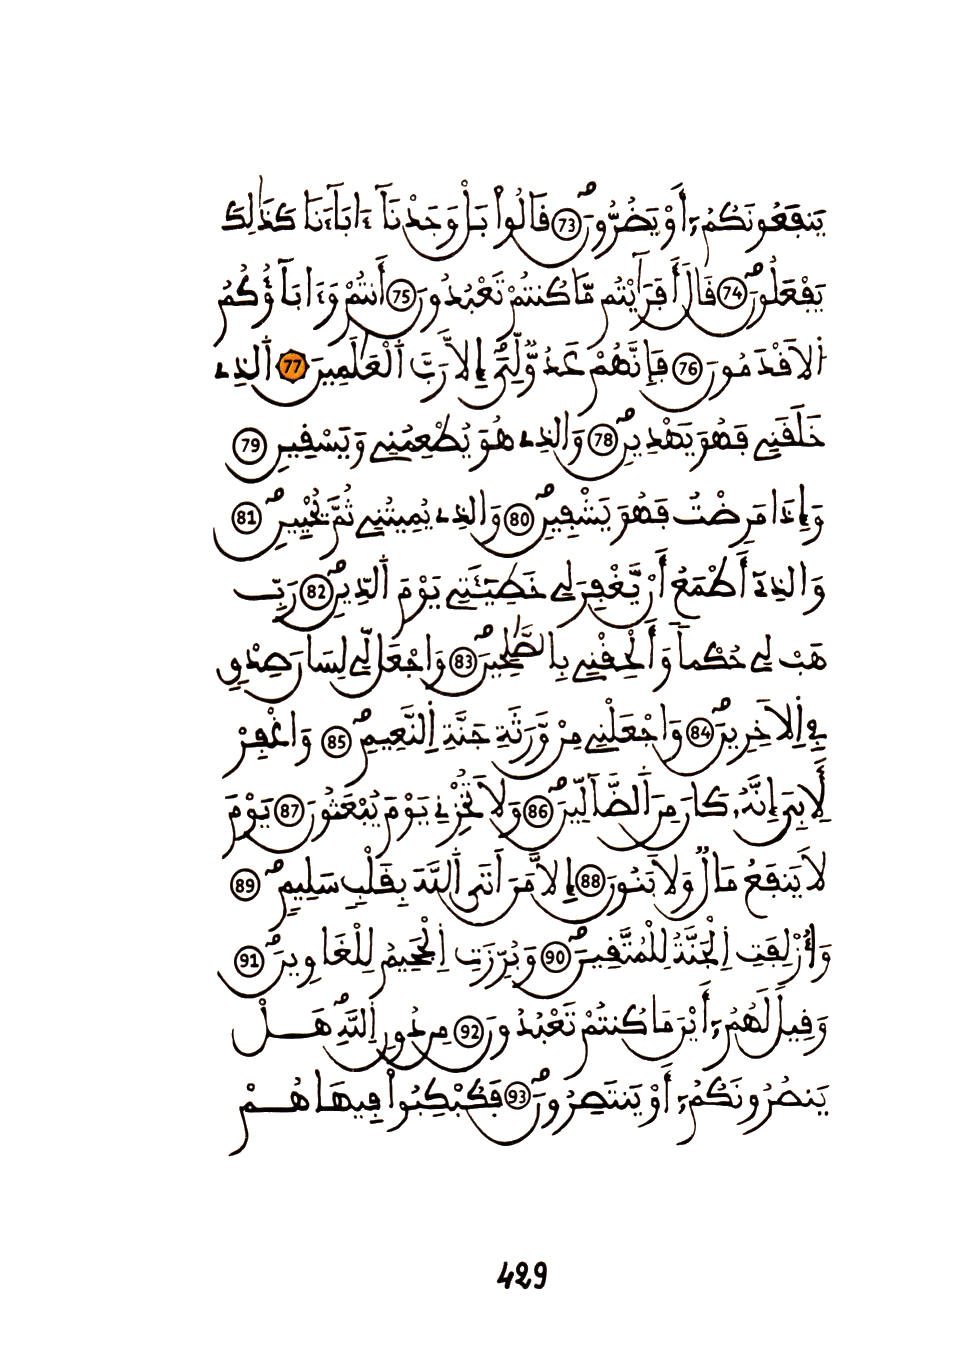 يَنفَعُونَكُمُۥٓ أَوْ يَضُرُّونَۖ 73 قَالُواْ بَلْ وَجَدْنَآ ءَابَآءَنَا كَذَٰلِكَ
يَفْعَلُونَۖ 74 قَالَ أَفَرَٰٓيْتُم مَّا كُنتُمْ تَعْبُدُونَ 75 أَنتُمْ وَءَابَآؤُكُمُ
اُ۬لَاقْدَمُونَ 76 فَإِنَّهُمْ عَدُوّٞ لِّيَ إِلَّا رَبَّ اَ۬لْعَٰلَمِينَ 77 اَ۬لذِے
خَلَقَنِے فَهُوَ يَهْدِينِۖ 78 وَالذِے هُوَ يُطْعِمُنِے وَيَسْقِينِۖ 79
وَإِذَا مَرِضْتُ فَهُوَ يَشْفِينِۖ 80 وَالذِے يُمِيتُنِے ثُمَّ يُحْيِينِۖ 81
وَالذِےٓ أَطْمَعُ أَنْ يَّغْفِرَ لِے خَطِيٓـَٔتِے يَوْمَ اَ۬لدِّينِۖ 82 رَبِّ
هَبْ لِے حُكْماٗ وَأَلْحِقْنِے بِالصَّٰلِحِينَۖ 83 وَاجْعَل لِّے لِسَانَ صِدْقٖ
فِے اِ۬لَاخِرِينَۖ 84 وَاجْعَلْنِے مِنْ وَّرَثَةِ جَنَّةِ اِ۬لنَّعِيمِۖ 85 وَاغْفِرْ
لِأَبِيَ إِنَّهُۥ كَانَ مِنَ اَ۬لضَّآلِّينَۖ 86 وَلَا تُخْزِنِے يَوْمَ يُبْعَثُونَ 87 يَوْمَ
لَا يَنفَعُ مَالٞ وَلَا بَنُونَ 88 إِلَّا مَنَ اَتَى اَ۬للَّهَ بِقَلْبٖ سَلِيمٖۖ 89
وَأُزْلِفَتِ اِ۬لْجَنَّةُ لِلْمُتَّقِينَۖ 90 وَبُرِّزَتِ اِ۬لْجَحِيمُ لِلْغَاوِينَۖ 91
وَقِيلَ لَهُمُۥٓ أَيْنَ مَا كُنتُمْ تَعْبُدُونَ 92 مِن دُونِ اِ۬للَّهِۖ هَلْ
يَنصُرُونَكُمُۥٓ أَوْ يَنتَصِرُونَۖ 93 فَكُبْكِبُواْ فِيهَا هُمْ
429